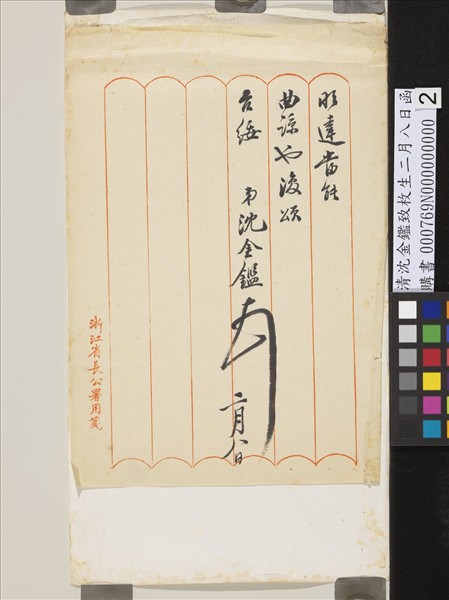 明達當能
曲諒也復頌
台綏 弟沈金鑑
二月八日
浙江省長公署用箋
清沈金鑑致枚生二月八日函
購書 000769N000000000
2